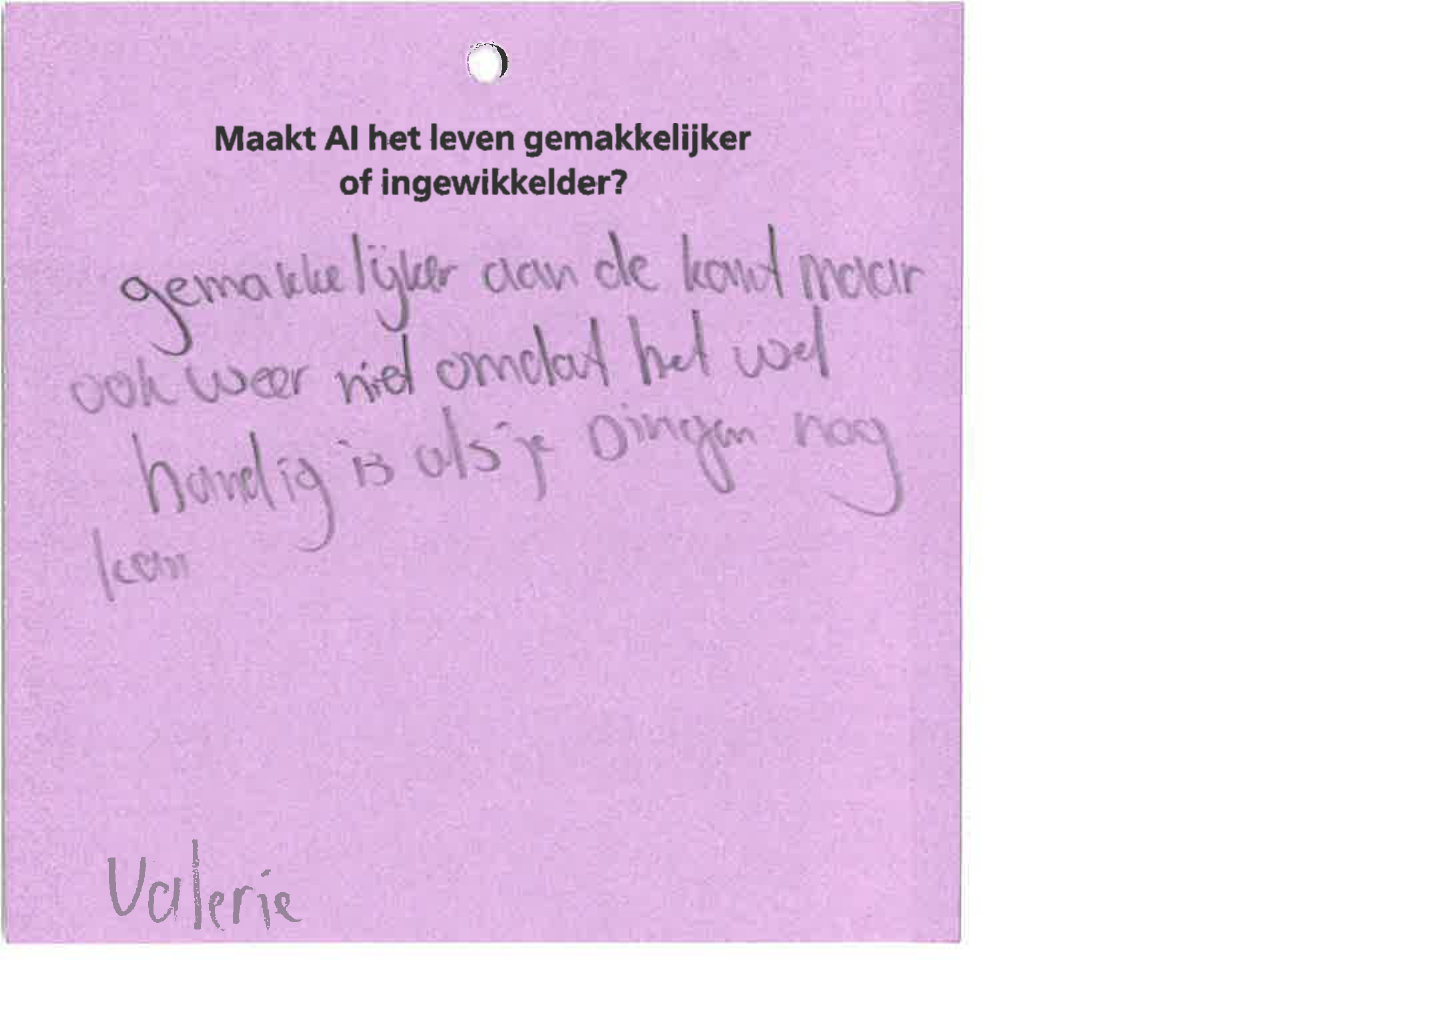 Maakt AI het leven gemakkelijker
of ingewikkelder?
gemakkelijker aan de kant maar
ook weer niet omdat het wel
handig is als je Dingen nog
kan
Valerie